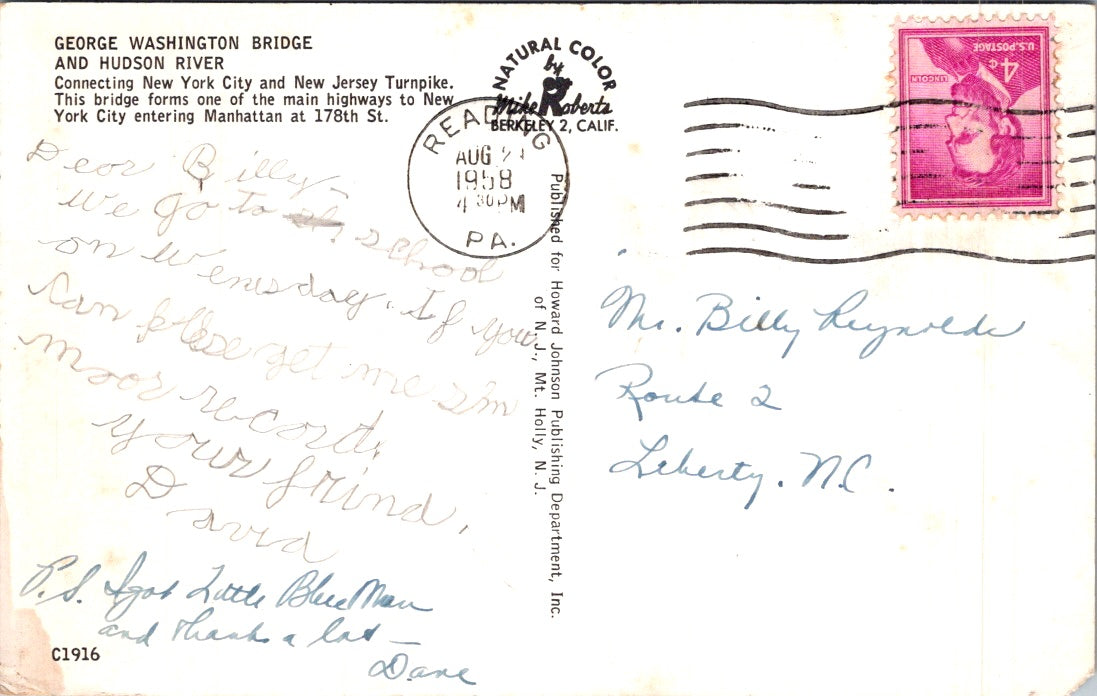 GEORGE WASHINGTON BRIDGE
AND HUDSON RIVER
Connecting New York City and New Jersey Turnpike.
This bridge forms one of the main highways to New
York City entering Manhattan at 178th St.
NATURAL COLOR
by
Mike Roberts
BERKELEY 2, CALIF.
READING
AUG
1958
4 30 PM
PA.
U.S. POSTAGE
4¢
LINCOLN
Dear Billy
We go to school
on Wenesday. If you
can plese get me sem
moor recort.
your frind,
David
P.S. I got Little Blue Man
and thanks a lot —
Dave
Published for Howard Johnson Publishing Department, Inc.
of N. J., Mt. Holly, N. J.
Mr. Billy Reynolds
Route 2
Liberty, N.C.
C1916